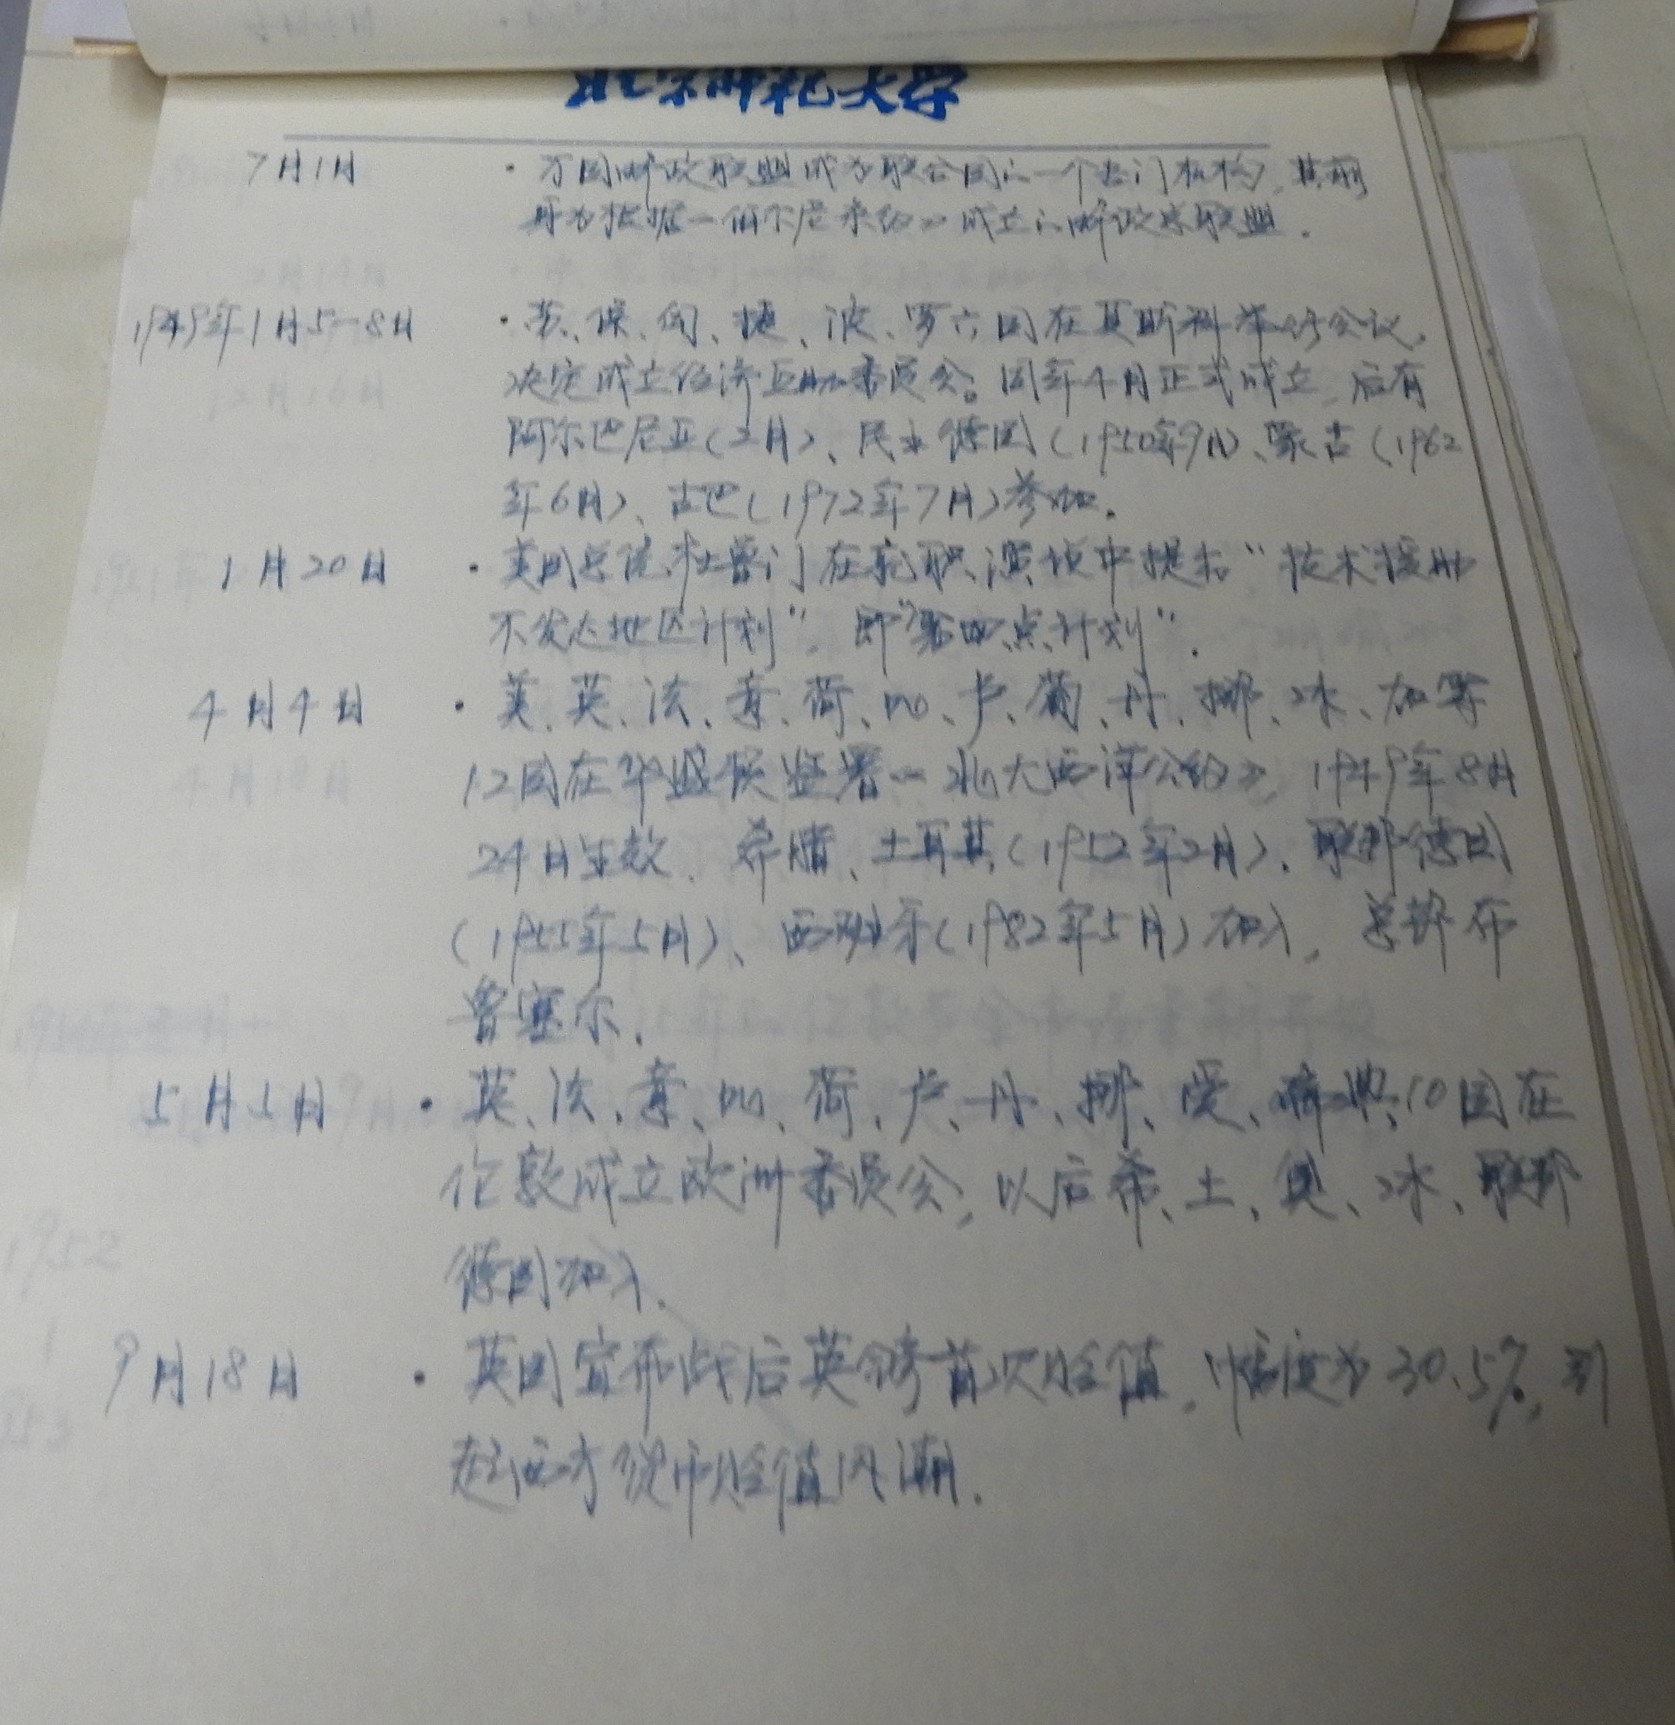 北京师范大学
7月1日 · 万国邮政联盟成为联合国的一个专门机构,其前
身为根据《伯尔尼条约》成立的邮政总联盟.
1949年1月5-8日 · 苏、保、匈、捷、波、罗六国在莫斯科举行会议,
决定成立经济互助委员会。同年4月正式成立,后有
阿尔巴尼亚(2月)、民主德国(1950年9月)、蒙古(1962
年6月)、古巴(1972年7月)参加.
1月20日 · 美国总统杜鲁门在就职演说中提出"技术援助
不发达地区计划", 即"第四点计划".
4月4日 · 美、英、法、意、荷、比、卢、葡、丹、挪、冰、加等
12国在华盛顿签署《北大西洋公约》,1949年8月
24日生效. 希腊、土耳其(1952年2月)、联邦德国
(1955年5月)、西班牙(1982年5月)加入, 总部布
鲁塞尔.
5月5日 · 英、法、意、比、荷、卢、丹、挪、爱、瑞典10国在
伦敦成立欧洲委员会,以后希、土、奥、冰、联邦
德国加入.
9月18日 · 英国宣布战后英镑首次贬值,幅度为30.5%,引
起西方货币贬值风潮.